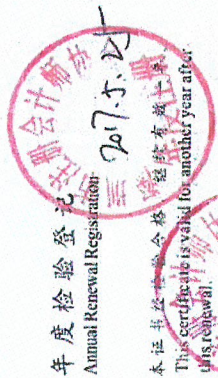 年度检验登记
Annual Renewal Registration
2017.5.
本证书经检验合格，继续有效一年。
This certificate is valid for another year after
this renewal.
注册会计师